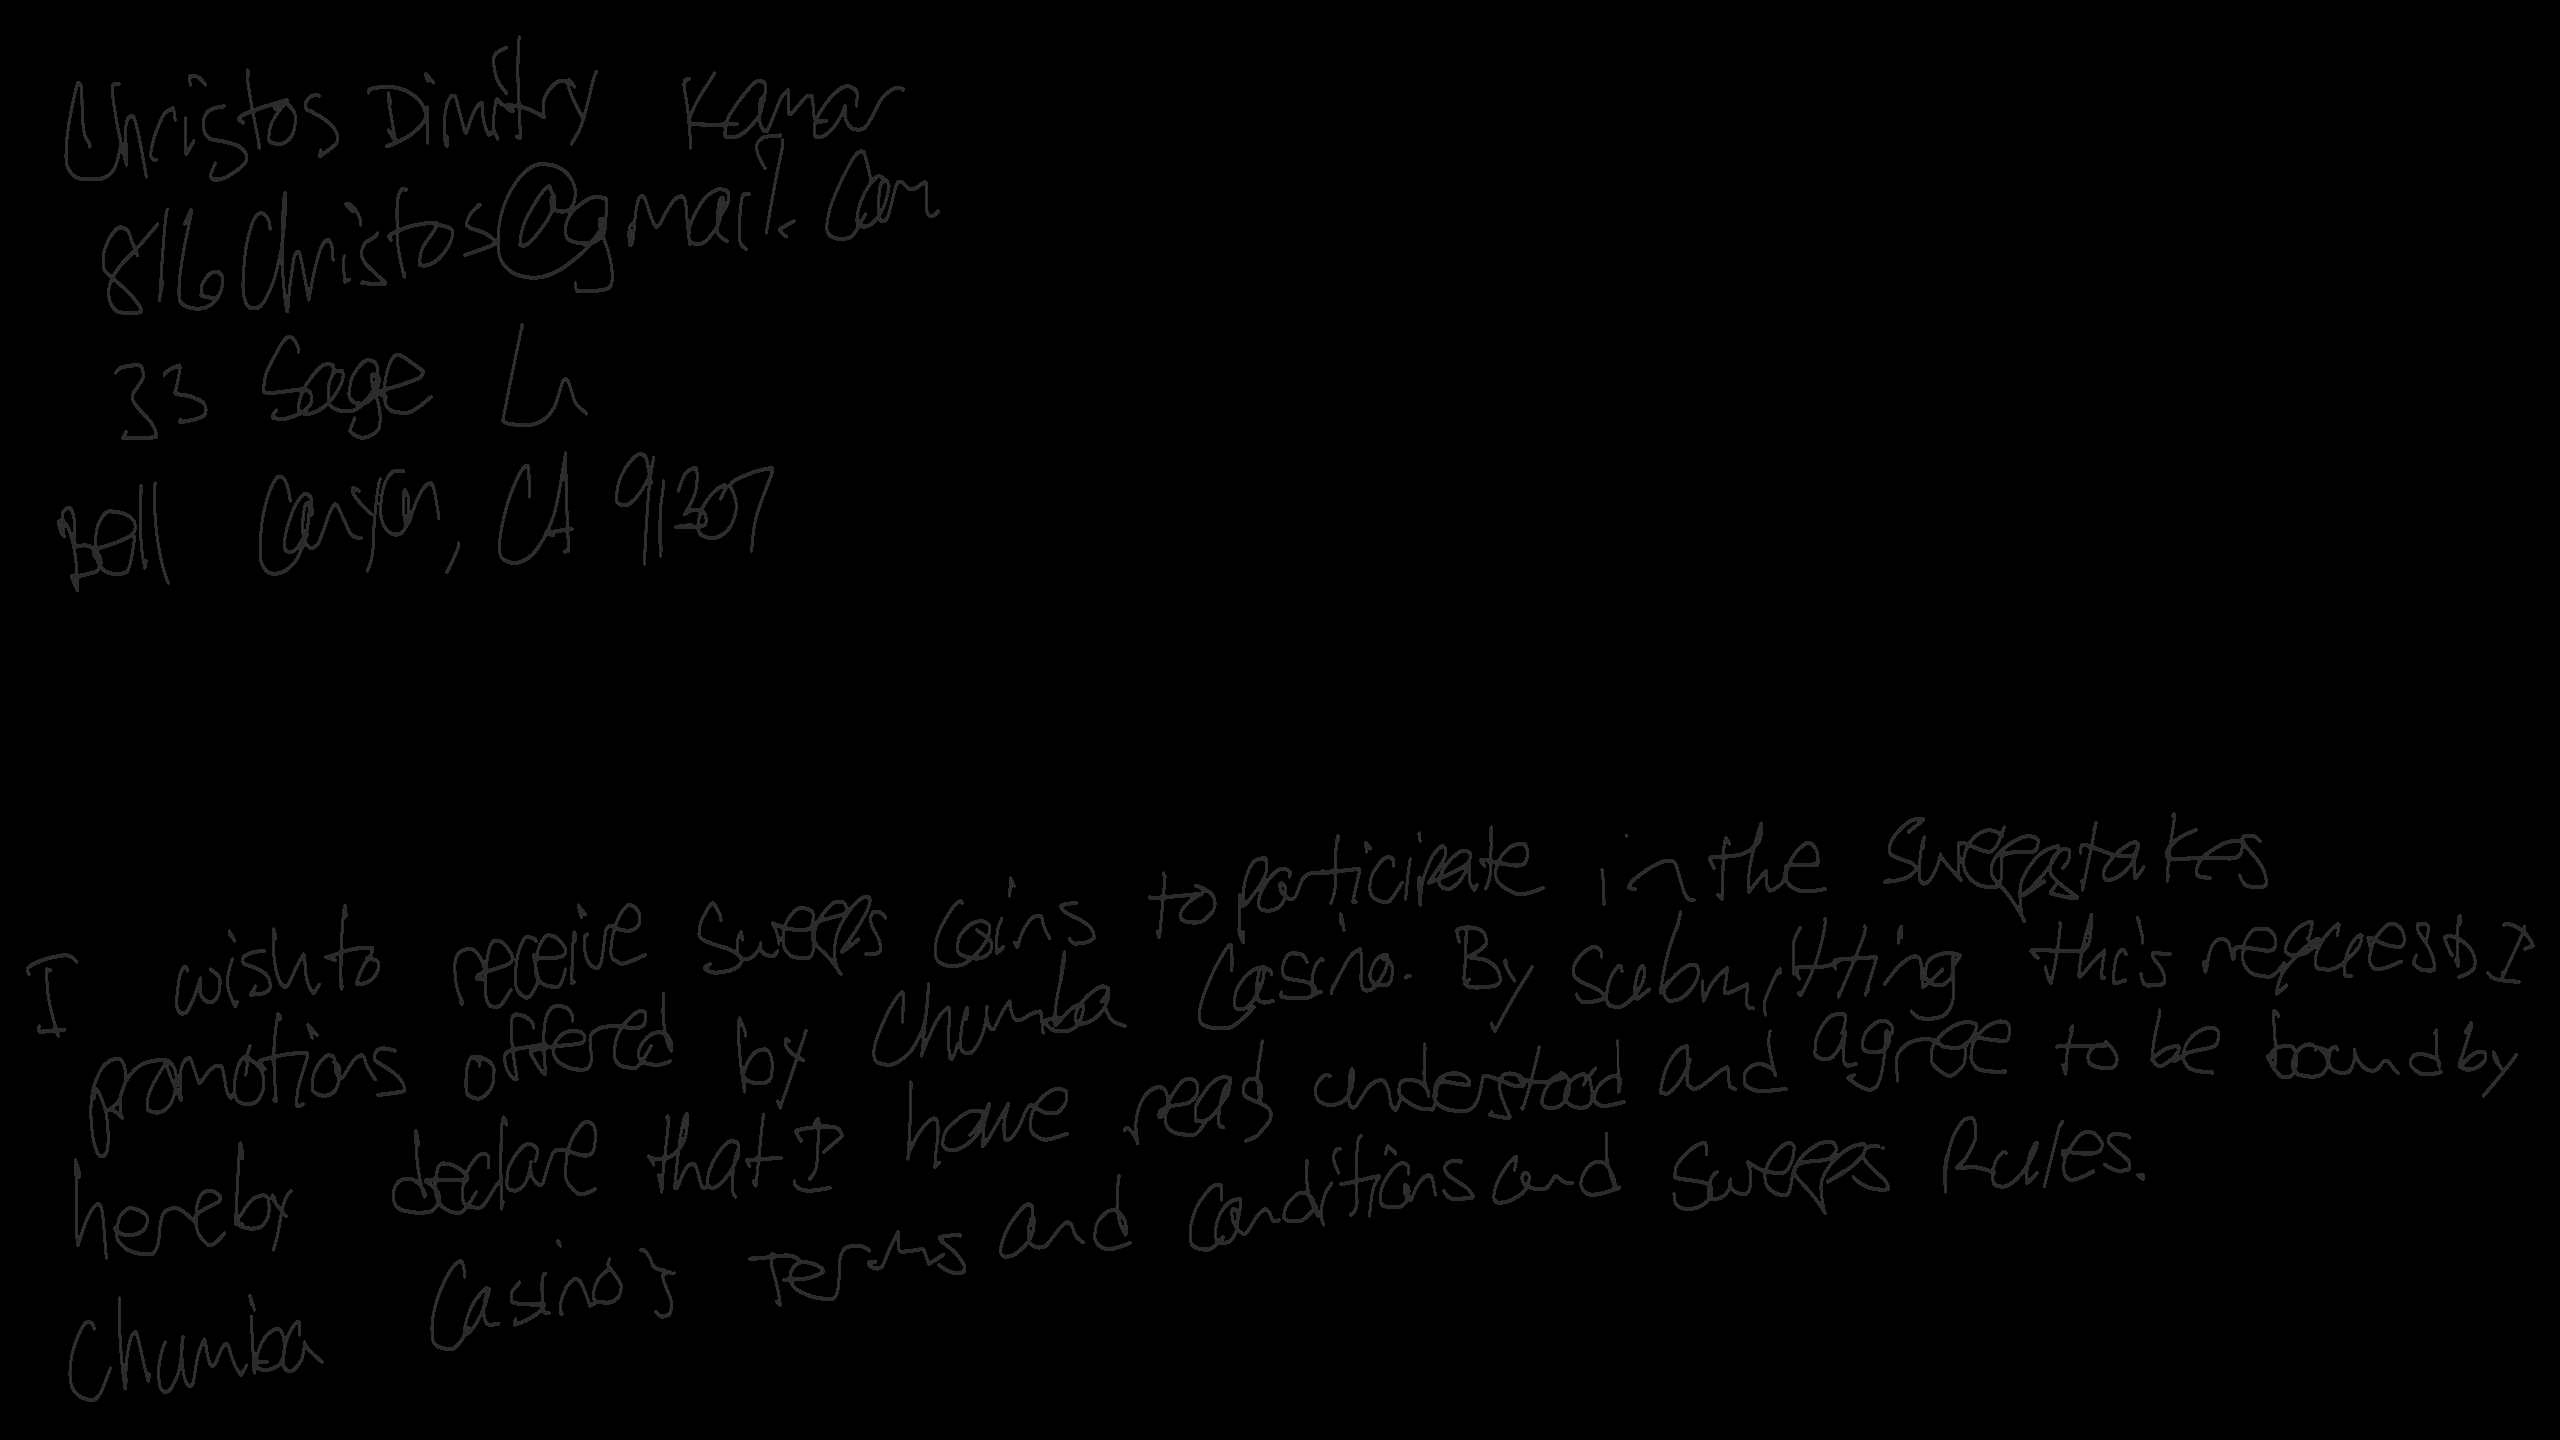 Christos Dimitry Kamar
816Christos@gmail.com
33 Sage Ln
Bell Canyon, CA 91307
I wish to receive sweeps coins to participate in the sweepstakes
promotions offered by Chumba Casino. By submitting this request, I
hereby declare that I have read understood and agree to be bound by
Chumba Casino's Terms and conditions and sweeps Rules.